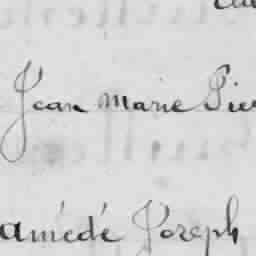 Jean Marie Pier
amédé Joseph